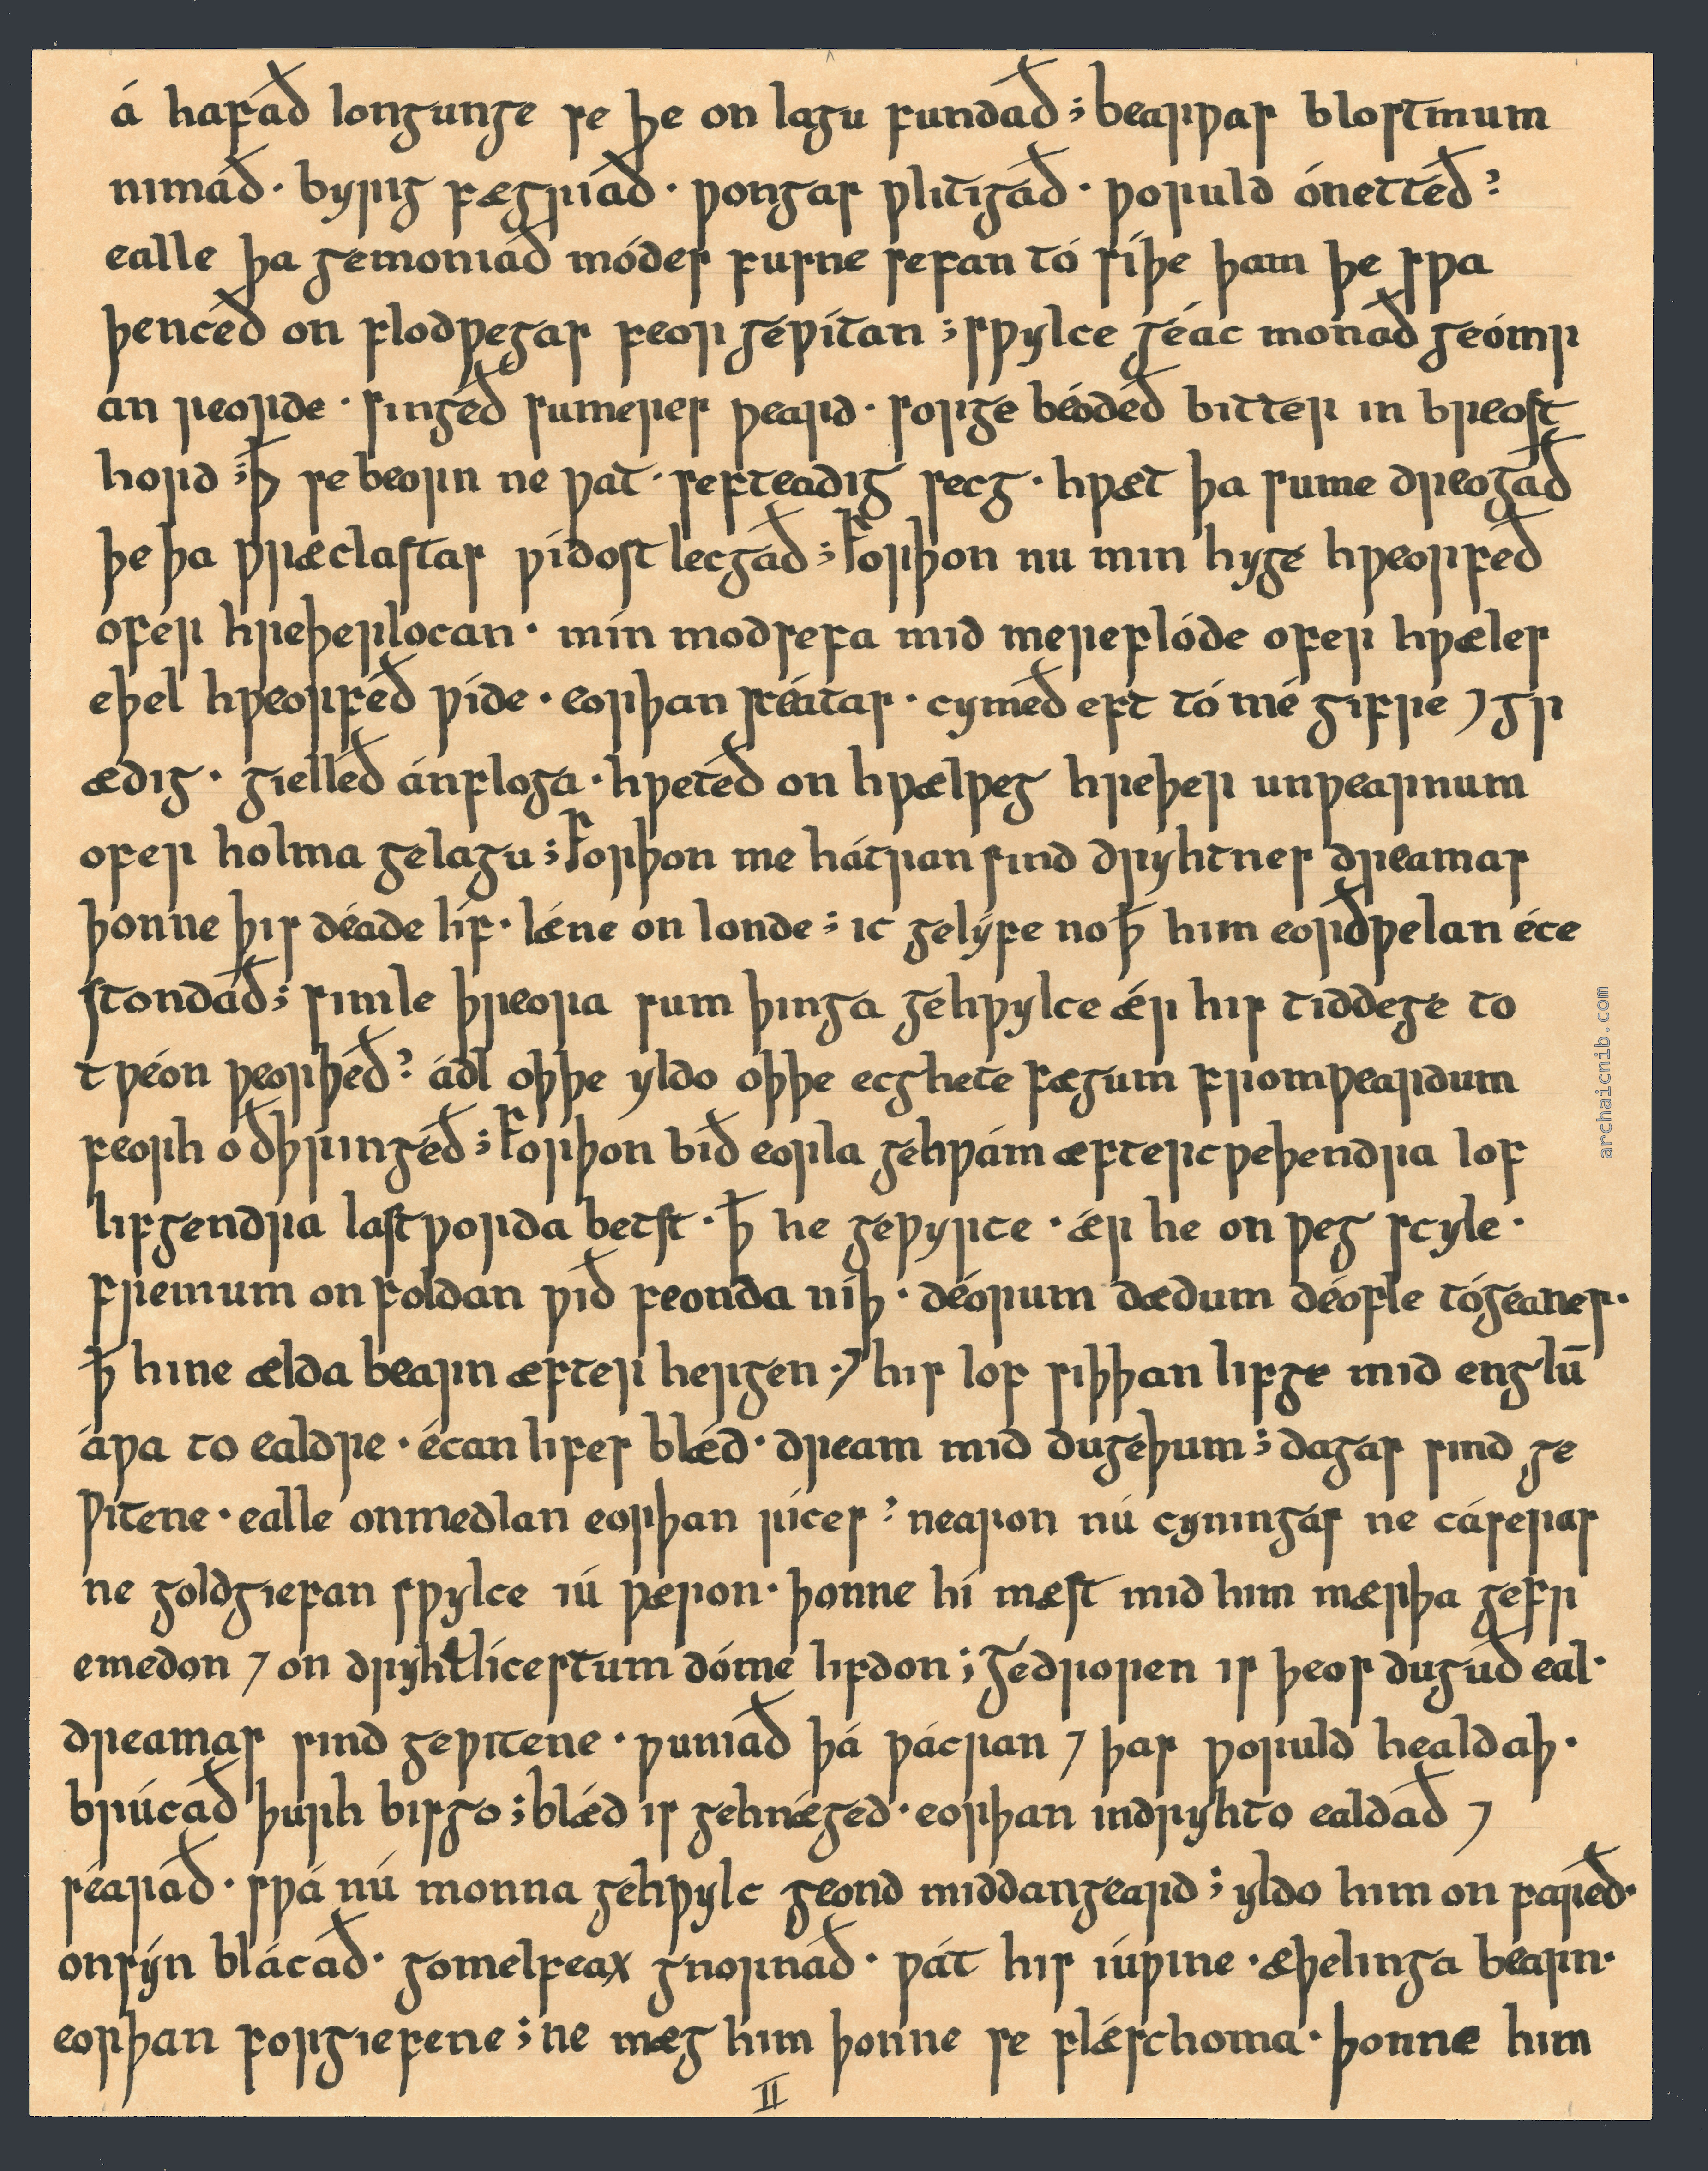 á hafáð longunge se þe on lagu fundað ; bearƿas blostmum
nimáð · byrig fægriað · ƿongas ƿlitigáð · ƿoruld ónettéð ?
ealle þa gemoniáð módes fusne sefan tó síþe þam þe sƿa
þencéð on flodƿegas feor geƿítan ; sƿylce géac monað geómr
an reorde · singéð sumeres ƿeard · sorge béodeð bitter in breost
hord ; ꝥ se beorn ne ƿat · sefteadig secg · hƿæt þa sume dreogað
þe þa ƿræclastas ƿidost lecgáð ; Forþon nu min hyge hƿeorfeð
ofer hreþerlocan · mín modsefa mid mereflóde ofer hƿæles
eþel hƿeorféð ƿíde · eorþan scéatas · cyméð eft tó mé gifre ⁊ gr
ædig · gielléð ánfloga · hƿetéð on hƿælƿeg hreþer unƿearnum
ofer holma gelagu ; Forþon me hátran sind dryhtnes dreamas
þonne þis déade líf · lǽne on londe ; ic gelýfe no ꝥ him eorðƿelan éce
stondáð ; simle þreora sum þinga gehƿylce ǽr his tiddege to
tƿéon ƿeorþéð ? ádl oþþe yldo oþþe ecghete fægum fromƿeardum
feorh oðþringéð ; Forþon bið eorla gehƿám æftercƿeþendra lof
lifgendra lastƿorda betst · ꝥ he geƿyrce · ǽr he on ƿeg scyle ·
fremum on foldan ƿið feonda níþ · déorum dædum déofle tógéanes ·
ꝥ hine ælda bearn æfter hergen · ⁊ his lof siþþan lifge mid englū
áƿa to ealdre · écan lifes blǽd · dream mid dugeþum ; dagas sind ge
ƿitene · ealle onmedlan eorþan rices ? nearon nú cyningas ne cáseras
ne goldgiefan sƿylce iú ƿæron · þonne hi mæst mid him mærþa gefr
emedon ⁊ on dryhtlícestum dóme lifdon ; Gedroren is þeos duguð eal ·
dreamas sind geƿitene · ƿuniað þá ƿácran ⁊ þas ƿoruld healdaþ ·
brúcað þurh bisgo ; blǽd is gehnǽged · eorþan indryhto ealdað ⁊
séarað · sƿá nú monna gehƿylc geond middangeard ; yldo him on faréð ·
onsýn blácað · gomelfeax gnornáð · ƿát his iúƿine · æþelinga bearn ·
eorþan forgiefene ; ne mæg him þonne se flǽschoma · þonne him
II
archaicnib.com